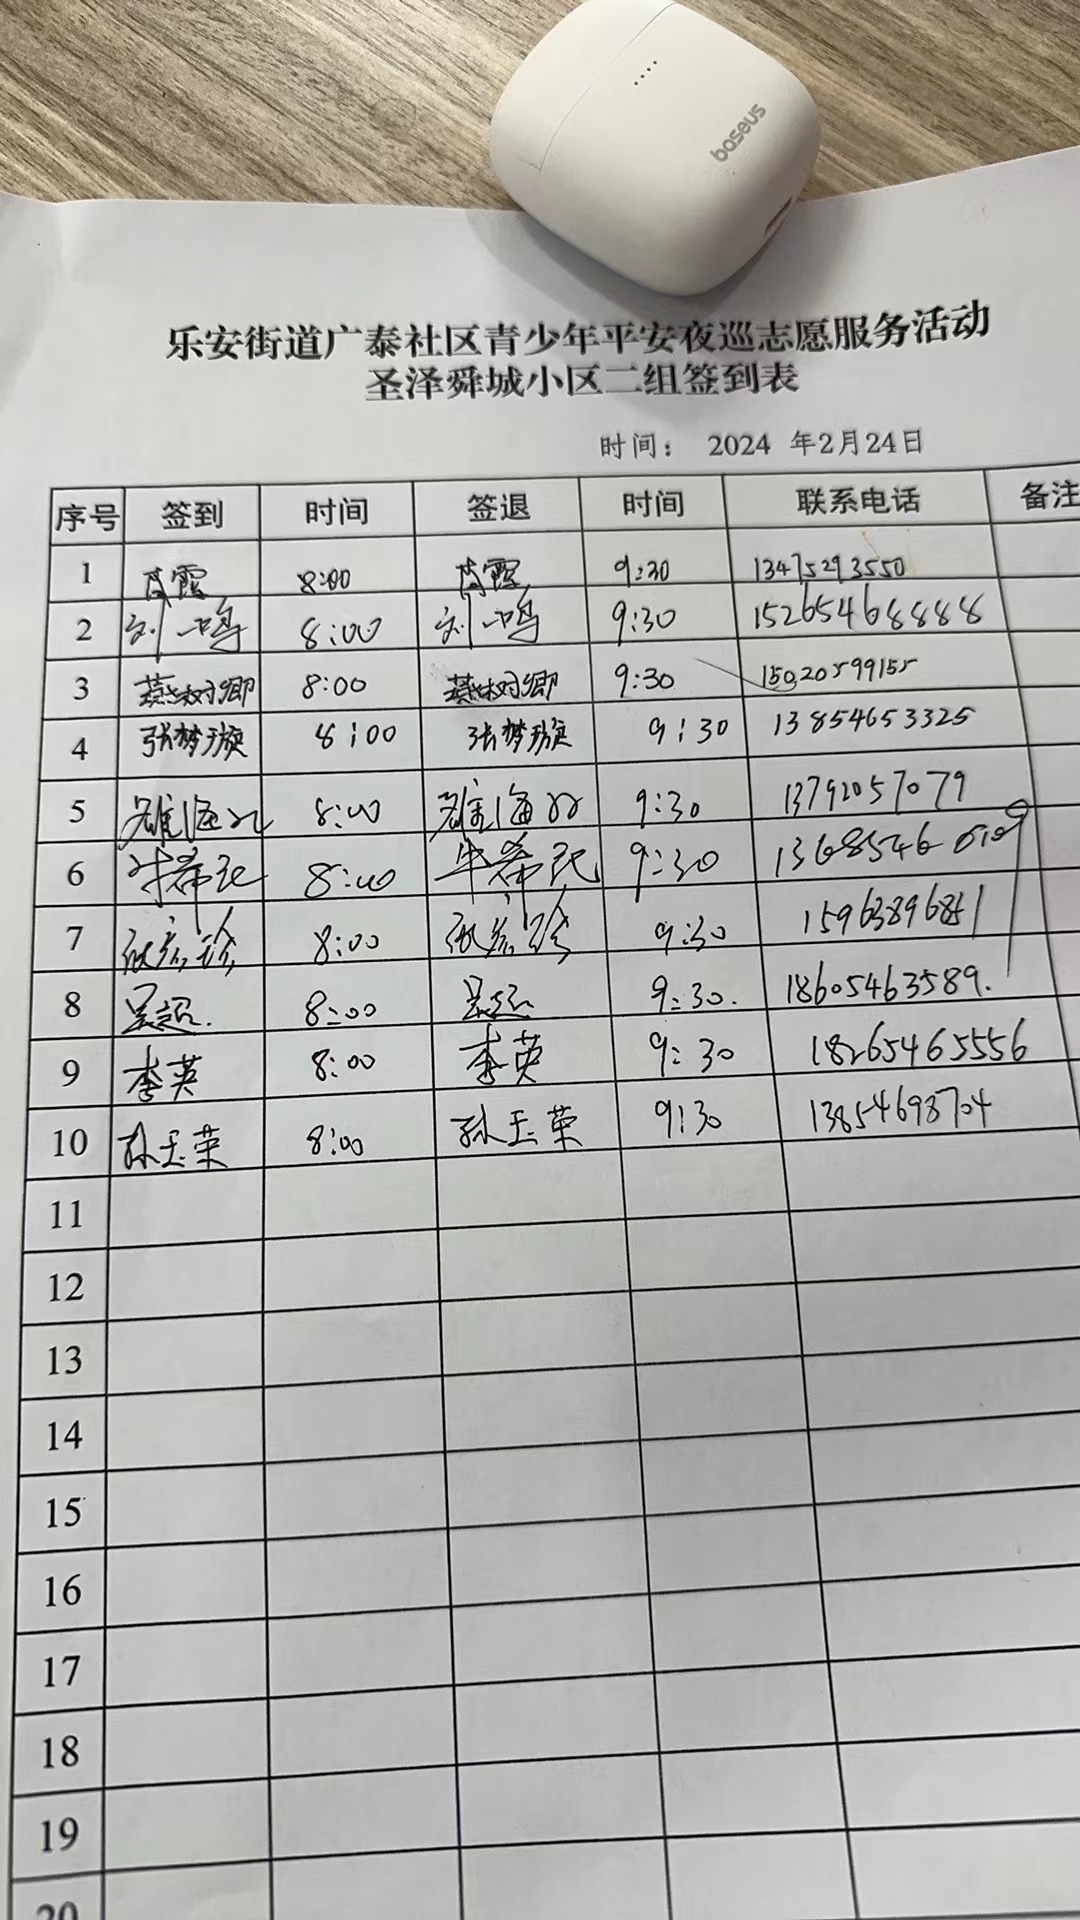 baseus
乐安街道广泰社区青少年平安夜巡志愿服务活动
圣泽舜城小区二组签到表
时间： 2024 年2月24日
序号 签到 时间 签退 时间 联系电话 备注
1 肖霞 8:00 肖霞 9:30 13475293550
2 刘一鸣 8:00 刘一鸣 9:30 15265468888
3 燕树卿 8:00 燕树卿 9:30 15020599155
4 张梦璇 8:00 张梦璇 9:30 13854653325
5 8:00 9:30 13792057079
6 8:00 9:30
7 8:00 9:30 15963896851
8 吴超 8:00 吴超 9:30. 18605463589.
9 李英 8:00 李英 9:30 18265465556
10 孙玉荣 8:00 孙玉荣 9:30 13854698704
11
12
13
14
15
16
17
18
19
20